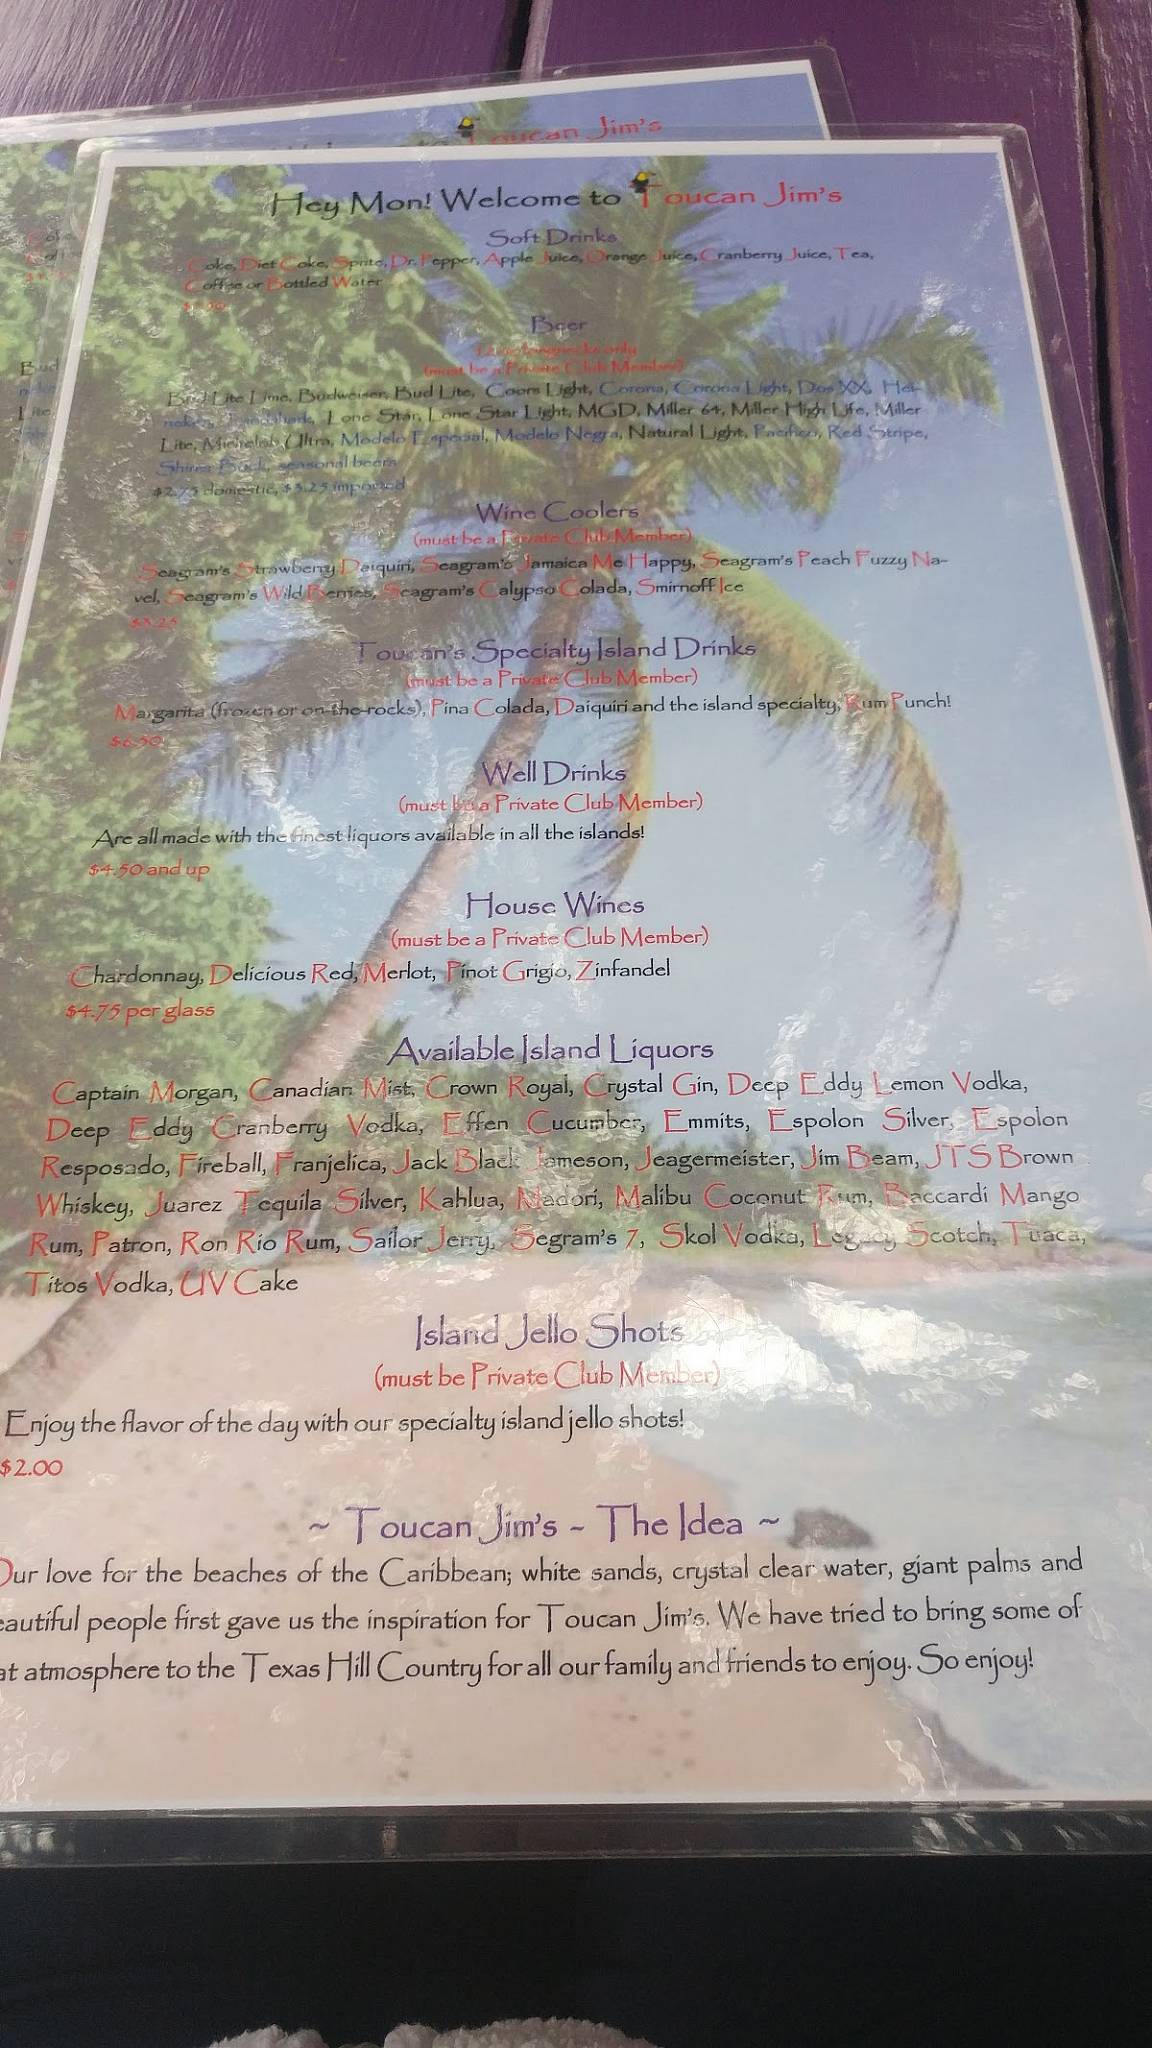 Toucan Jim's
Hey Mon! Welcome to Toucan Jim's
Soft Drinks
Coke, Diet Coke, Sprite, Dr. Pepper, Apple Juice, Orange Juice, Cranberry Juice, Tea,
Coffee or Bottled Water
Beer
longnecks only
(must be a Private Club Member)
Bud Lite Lime, Budweiser, Bud Lite, Coors Light, Corona, Corona Light, Dos XX, Hei-
Lone Star, Lone Star Light, MGD, Miller 64, Miller High Life, Miller
Lite, Michelob Ultra, Modelo Especial, Modelo Negra, Natural Light, Pacifico, Red Stripe,
Shiner Bock, seasonal beers
$2.75 domestic, $3.25 imported
Wine Coolers
(must be a Private Club Member)
Seagram's Strawberry Daiquiri, Seagram's Jamaica Me Happy, Seagram's Peach Fuzzy Na-
vel, Seagram's Wild Berries, Seagram's Calypso Colada, Smirnoff Ice
$3.25
Toucan's Specialty Island Drinks
(must be a Private Club Member)
Margarita (frozen or on-the-rocks), Pina Colada, Daiquiri and the island specialty, Rum Punch!
$6.50
Well Drinks
(must be a Private Club Member)
Are all made with the finest liquors available in all the islands!
$4.50 and up
House Wines
(must be a Private Club Member)
Chardonnay, Delicious Red, Merlot, Pinot Grigio, Zinfandel
$4.75 per glass
Available Island Liquors
Captain Morgan, Canadian Mist, Crown Royal, Crystal Gin, Deep Eddy Lemon Vodka,
Deep Eddy Cranberry Vodka, Effen Cucumber, Emmits, Espolon Silver, Espolon
Resposado, Fireball, Franjelica, Jack Black Jameson, Jeagermeister, Jim Beam, JTS Brown
Whiskey, Juarez Tequila Silver, Kahlua, Madori, Malibu Coconut Rum, Baccardi Mango
Rum, Patron, Ron Rio Rum, Sailor Jerry, Segram's 7, Skol Vodka, Legacy Scotch, Tuaca,
Titos Vodka, UV Cake
Island Jello Shots
(must be Private Club Member)
Enjoy the flavor of the day with our specialty island jello shots!
$2.00
~ Toucan Jim's - The Idea ~
Our love for the beaches of the Caribbean; white sands, crystal clear water, giant palms and
eautiful people first gave us the inspiration for Toucan Jim's. We have tried to bring some of
at atmosphere to the Texas Hill Country for all our family and friends to enjoy. So enjoy!